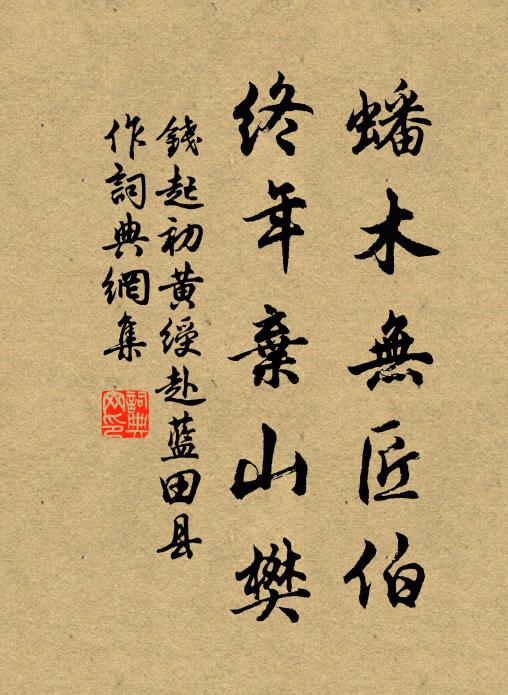 蟠木無匠伯
終年棄山樊
錢起初黃綬赴藍田县
作詞典網集
詞典
网印